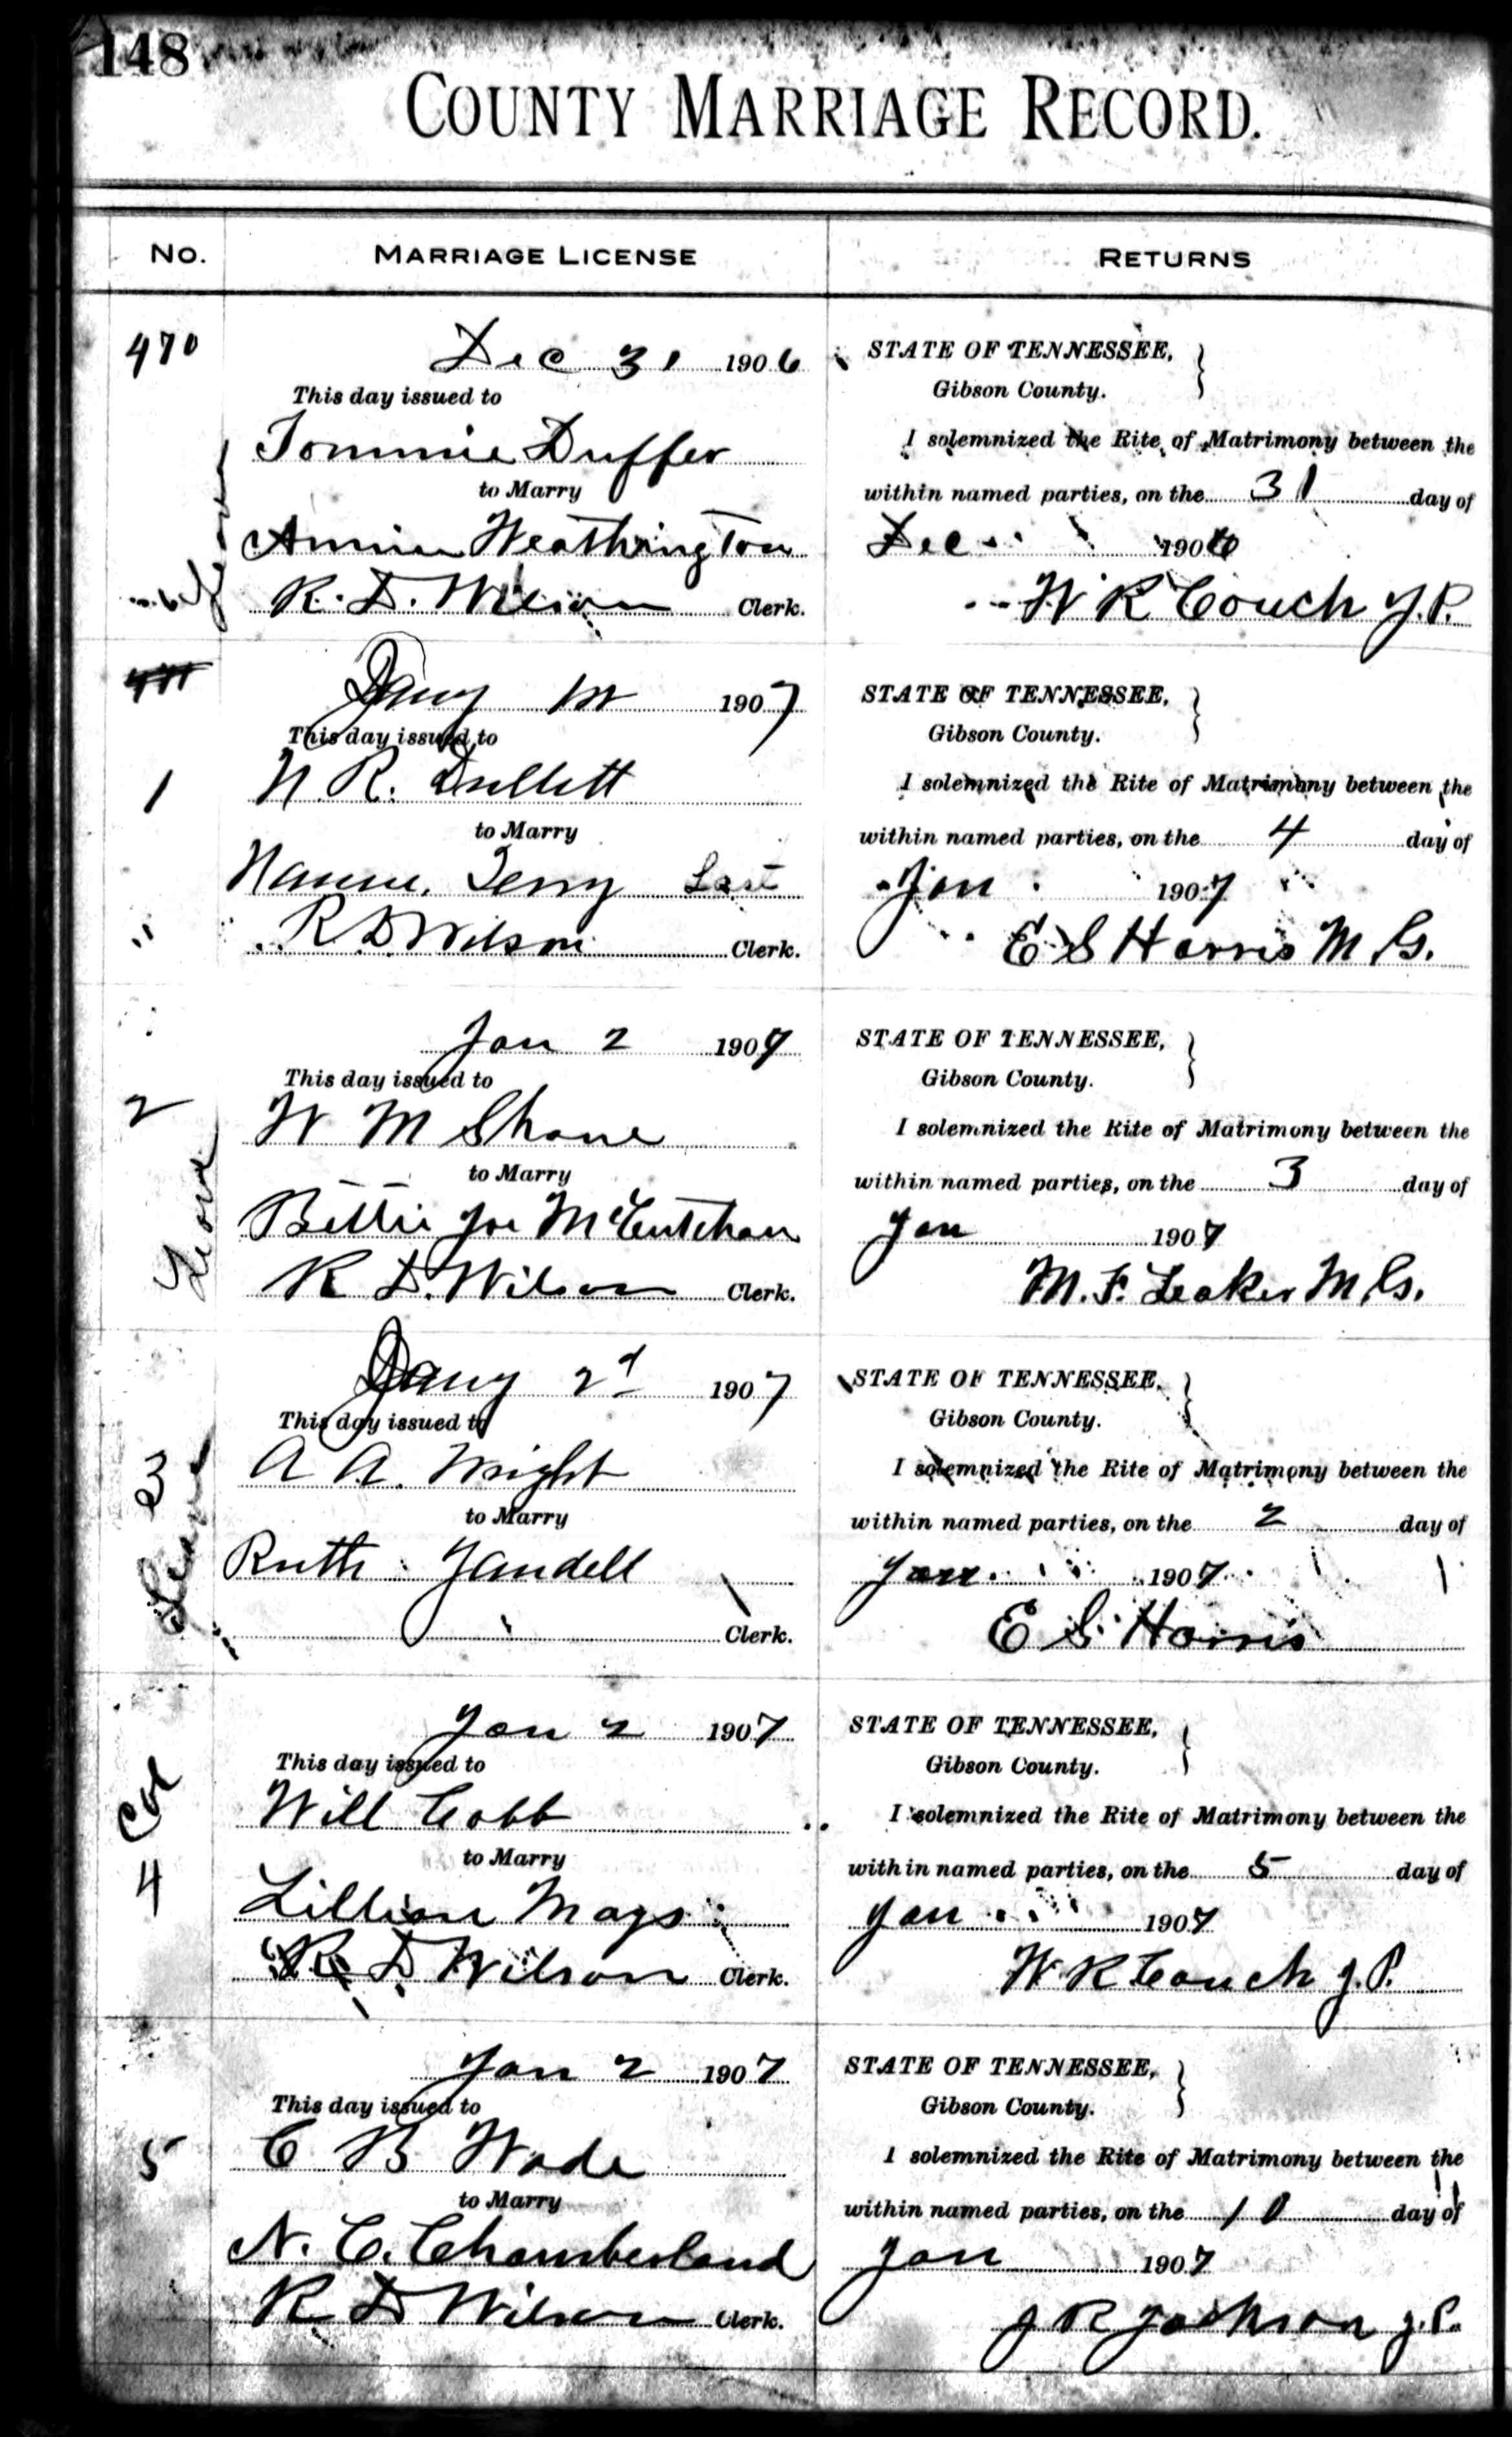 148
COUNTY MARRIAGE RECORD.
No.
MARRIAGE LICENSE
RETURNS
470
Dec 31 1906
This day issued to
Tommie Duffer
to Marry
Annie Weathington
R. D. Wilson Clerk.
STATE OF TENNESSEE,
Gibson County.
I solemnized the Rite of Matrimony between the
within named parties, on the 31 day of
Dec 1906
W R Couch J.P.
471
1
Jany 1st 1907
This day issued to
N. R. Dullett
to Marry
Nannie Terry
R D Wilson Clerk.
STATE OF TENNESSEE,
Gibson County.
I solemnized the Rite of Matrimony between the
within named parties, on the 4 day of
Jan 1907
E S Harris M G.
2
Jan 2 1907
This day issued to
W M Shane
to Marry
Bettie Joe McCutchan
R D. Wilson Clerk.
STATE OF TENNESSEE,
Gibson County.
I solemnized the Rite of Matrimony between the
within named parties, on the 3 day of
Jan 1907
M. F. Leaker M G.
3
Jany 2d 1907
This day issued to
A A. Wright
to Marry
Ruth Yandell
Clerk.
STATE OF TENNESSEE,
Gibson County.
I solemnized the Rite of Matrimony between the
within named parties, on the 2 day of
Jan 1907
E S Harris
Col
4
Jan 2 1907
This day issued to
Will Cobb
to Marry
Lillian Mays
R D Wilson Clerk.
STATE OF TENNESSEE,
Gibson County.
I solemnized the Rite of Matrimony between the
within named parties, on the 5 day of
Jan 1907
W R Couch J.P.
5
Jan 2 1907
This day issued to
C B Wade
to Marry
N. C. Chamberland
R D Wilson Clerk.
STATE OF TENNESSEE,
Gibson County.
I solemnized the Rite of Matrimony between the
within named parties, on the 10 day of
Jan 1907
J R Jackson J.P.